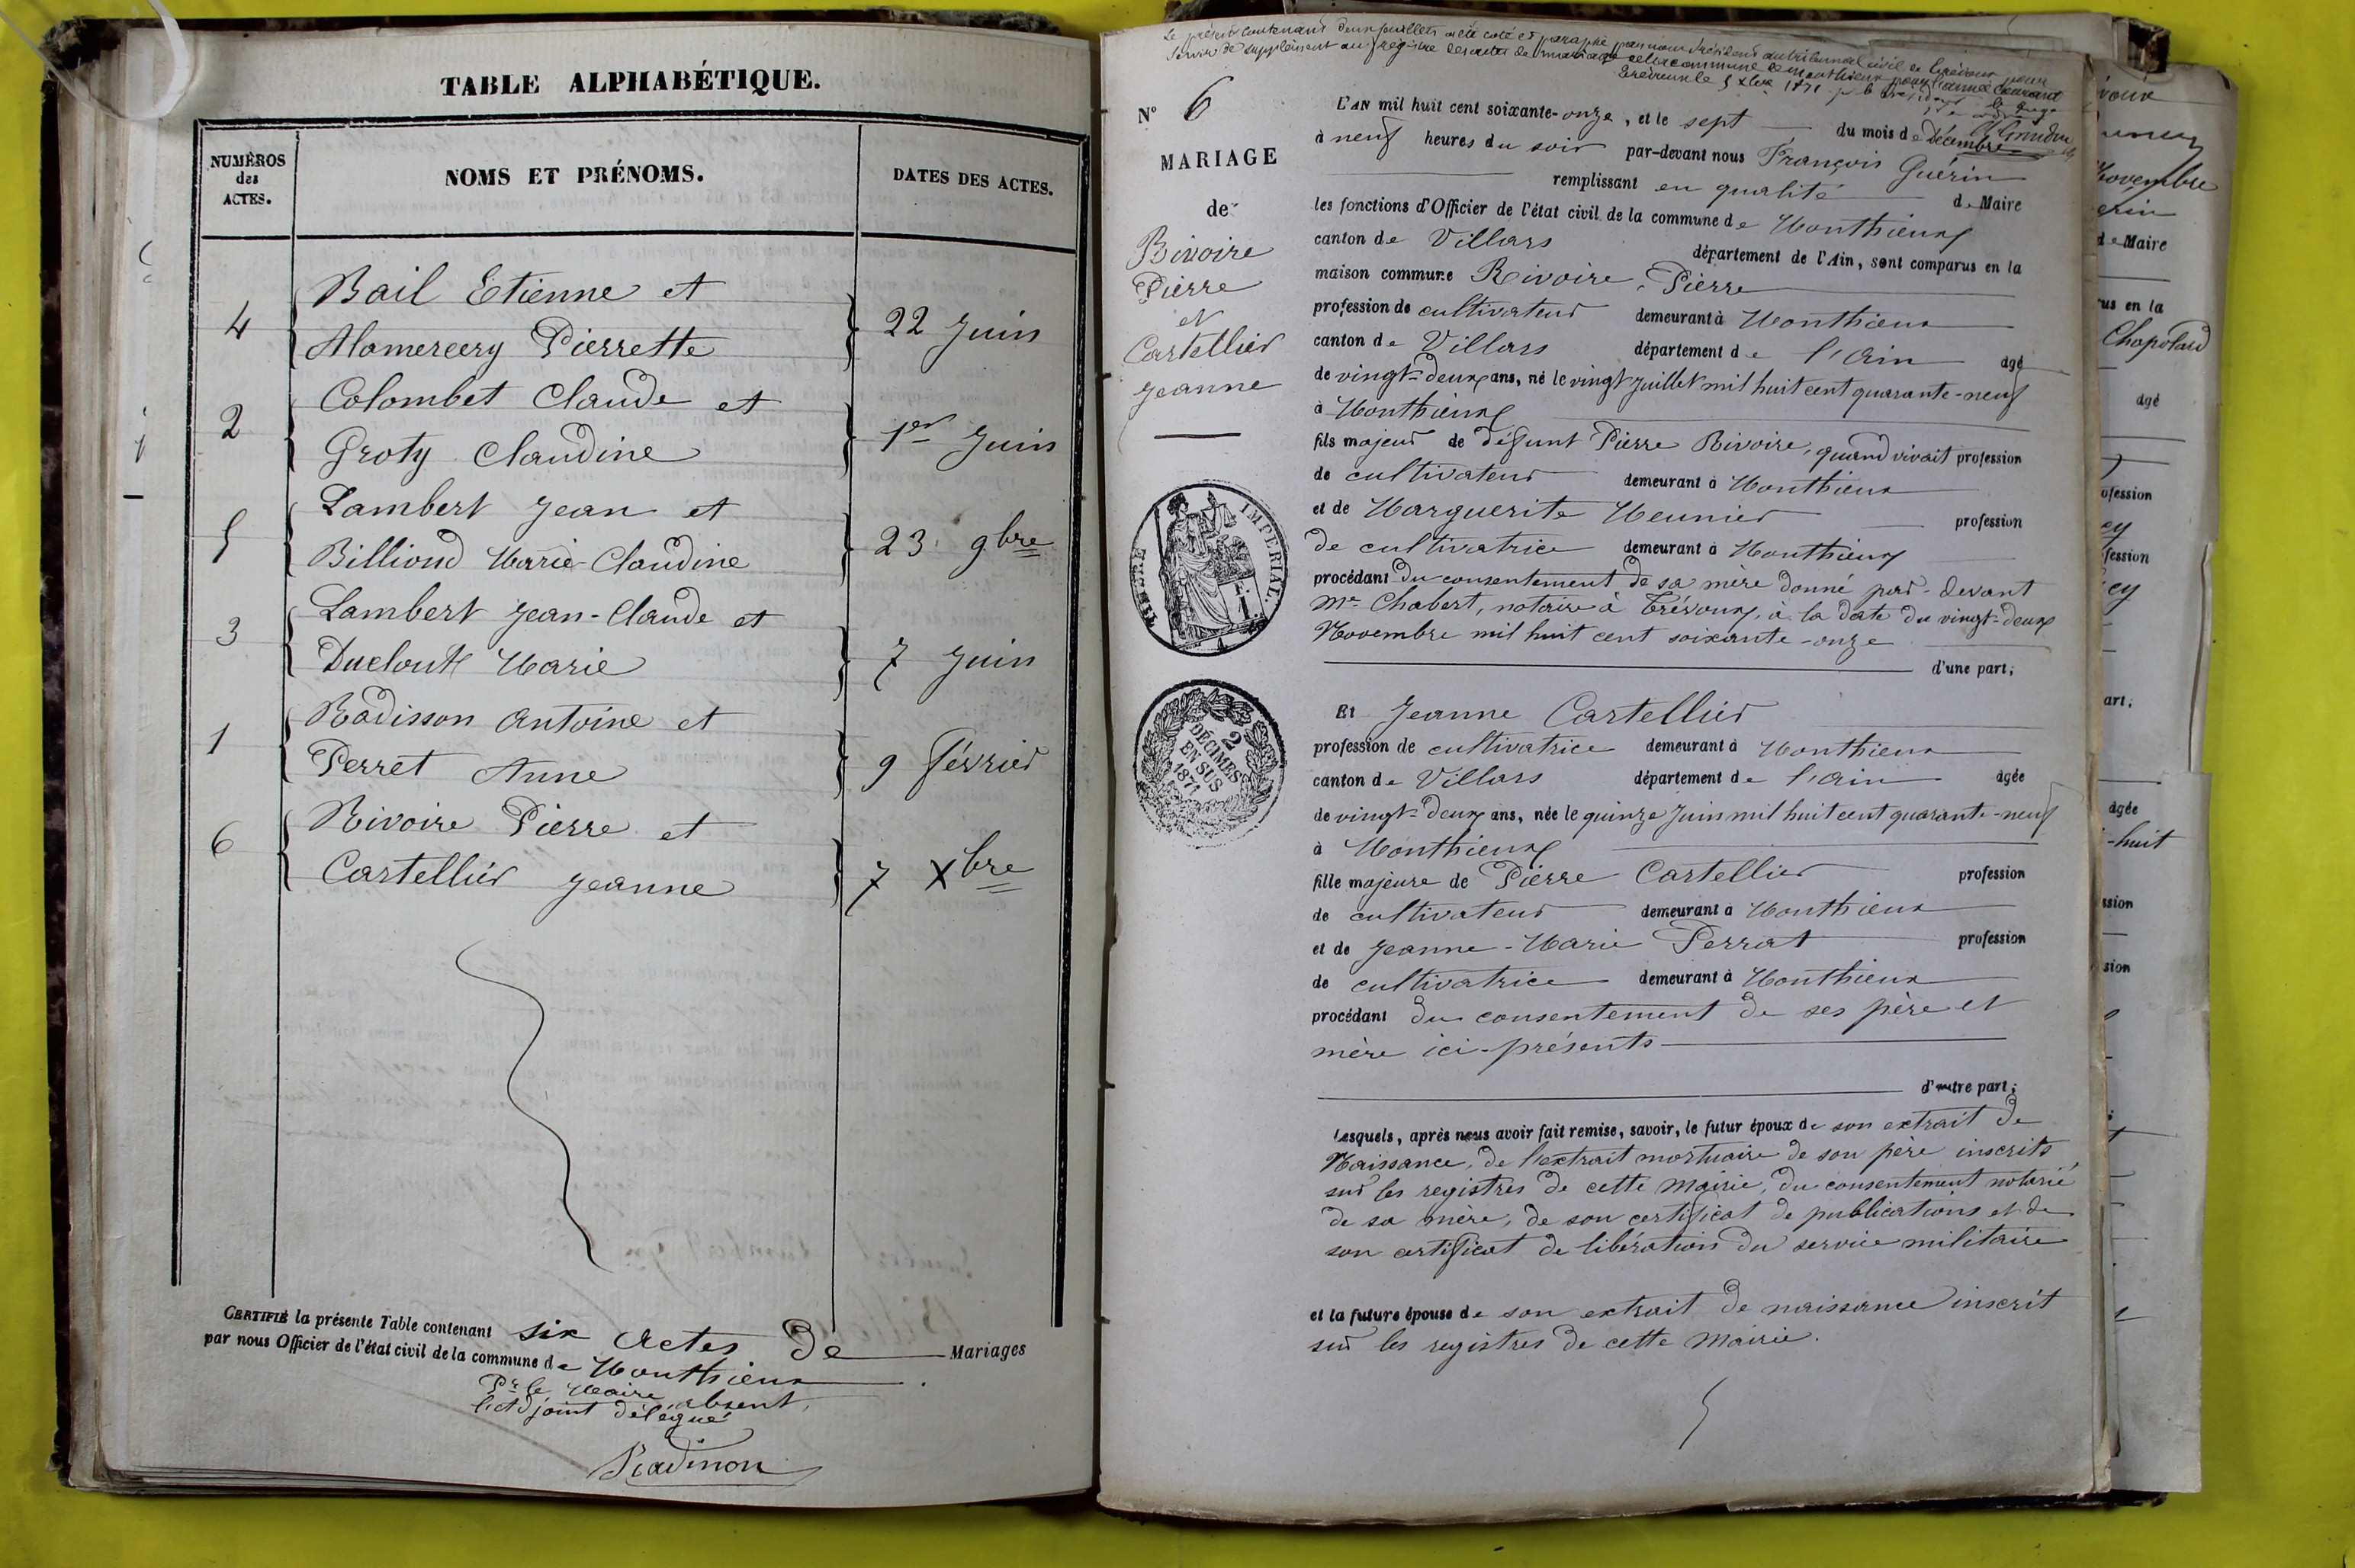 TABLE ALPHABÉTIQUE.
NUMÉROS des ACTES.
NOMS ET PRÉNOMS.
DATES DES ACTES.
4 Bail Etienne et
Alamercery Pierrette
22 Juin
2 Colombet Claude et
Groty Claudine
1er Juin
5 Lambert Jean et
Billioud Marie-Claudine
23 9bre
3 Lambert Jean-Claude et
Ducloux Marie
7 Juin
1 Radisson Antoine et
Perret Anne
9 Février
6 Rivoire Pierre et
Castellier Jeanne
7 Xbre
CERTIFIÉ la présente Table contenant six actes de Mariages
par nous Officier de l'état civil de la commune de Monthieux.
Pr le Maire absent,
l'adjoint délégué
Radisson
Le présent contenant deux feuillets a été coté et paraphé par nous Président du tribunal civil de Trévoux pour
servir de supplément au registre des actes de mariage de la commune de Monthieux pour l'année courante
Trévoux le 5 Xbre 1871
N° 6
MARIAGE
de
Rivoire
Pierre
et
Castellier
Jeanne
TIMBRE IMPÉRIAL.
F.
1
2
DÉCIMES
EN SUS
1871
L'AN mil huit cent soixante-onze, et le sept du mois de décembre
à neuf heures du soir par-devant nous François Guérin
remplissant en qualité de Maire
les fonctions d'Officier de l'état civil de la commune de Monthieux
canton de Villars département de l'Ain, sont comparus en la
maison commune Rivoire, Pierre
profession de cultivateur demeurant à Monthieux
canton de Villars département de l'Ain agé
de vingt-deux ans, né le vingt Juillet mil huit cent quarante-neuf
à Monthieux
fils majeur de défunt Pierre Rivoire, quand vivait profession
de cultivateur demeurant à Monthieux
et de Marguerite Meunier profession
de cultivatrice demeurant à Monthieux
procédant du consentement de sa mère donné par-devant
Me Chabert, notaire à Trévoux, à la date du vingt-deux
Novembre mil huit cent soixante-onze
d'une part;
Et Jeanne Castellier
profession de cultivatrice demeurant à Monthieux
canton de Villars département de l'Ain agée
de vingt-deux ans, née le quinze Juin mil huit cent quarante-neuf
à Monthieux
fille majeure de Pierre Castellier profession
de cultivateur demeurant à Monthieux
et de Jeanne-Marie Perrat profession
de cultivatrice demeurant à Monthieux
procédant du consentement de ses père et
mère ici-présents
d'autre part;
Lesquels, après nous avoir fait remise, savoir, le futur époux de son extrait de
Naissance, de l'extrait mortuaire de son père inscrits
sur les registres de cette Mairie, du consentement notarié
de sa mère, de son certificat de publications et de
son certificat de libération du service militaire
et la future épouse de son extrait de naissance inscrit
sur les registres de cette Mairie.
Novembre
de Maire
us en la
Chapolard
agé
ofession
fession
art;
agée
-huit
ssion
sion